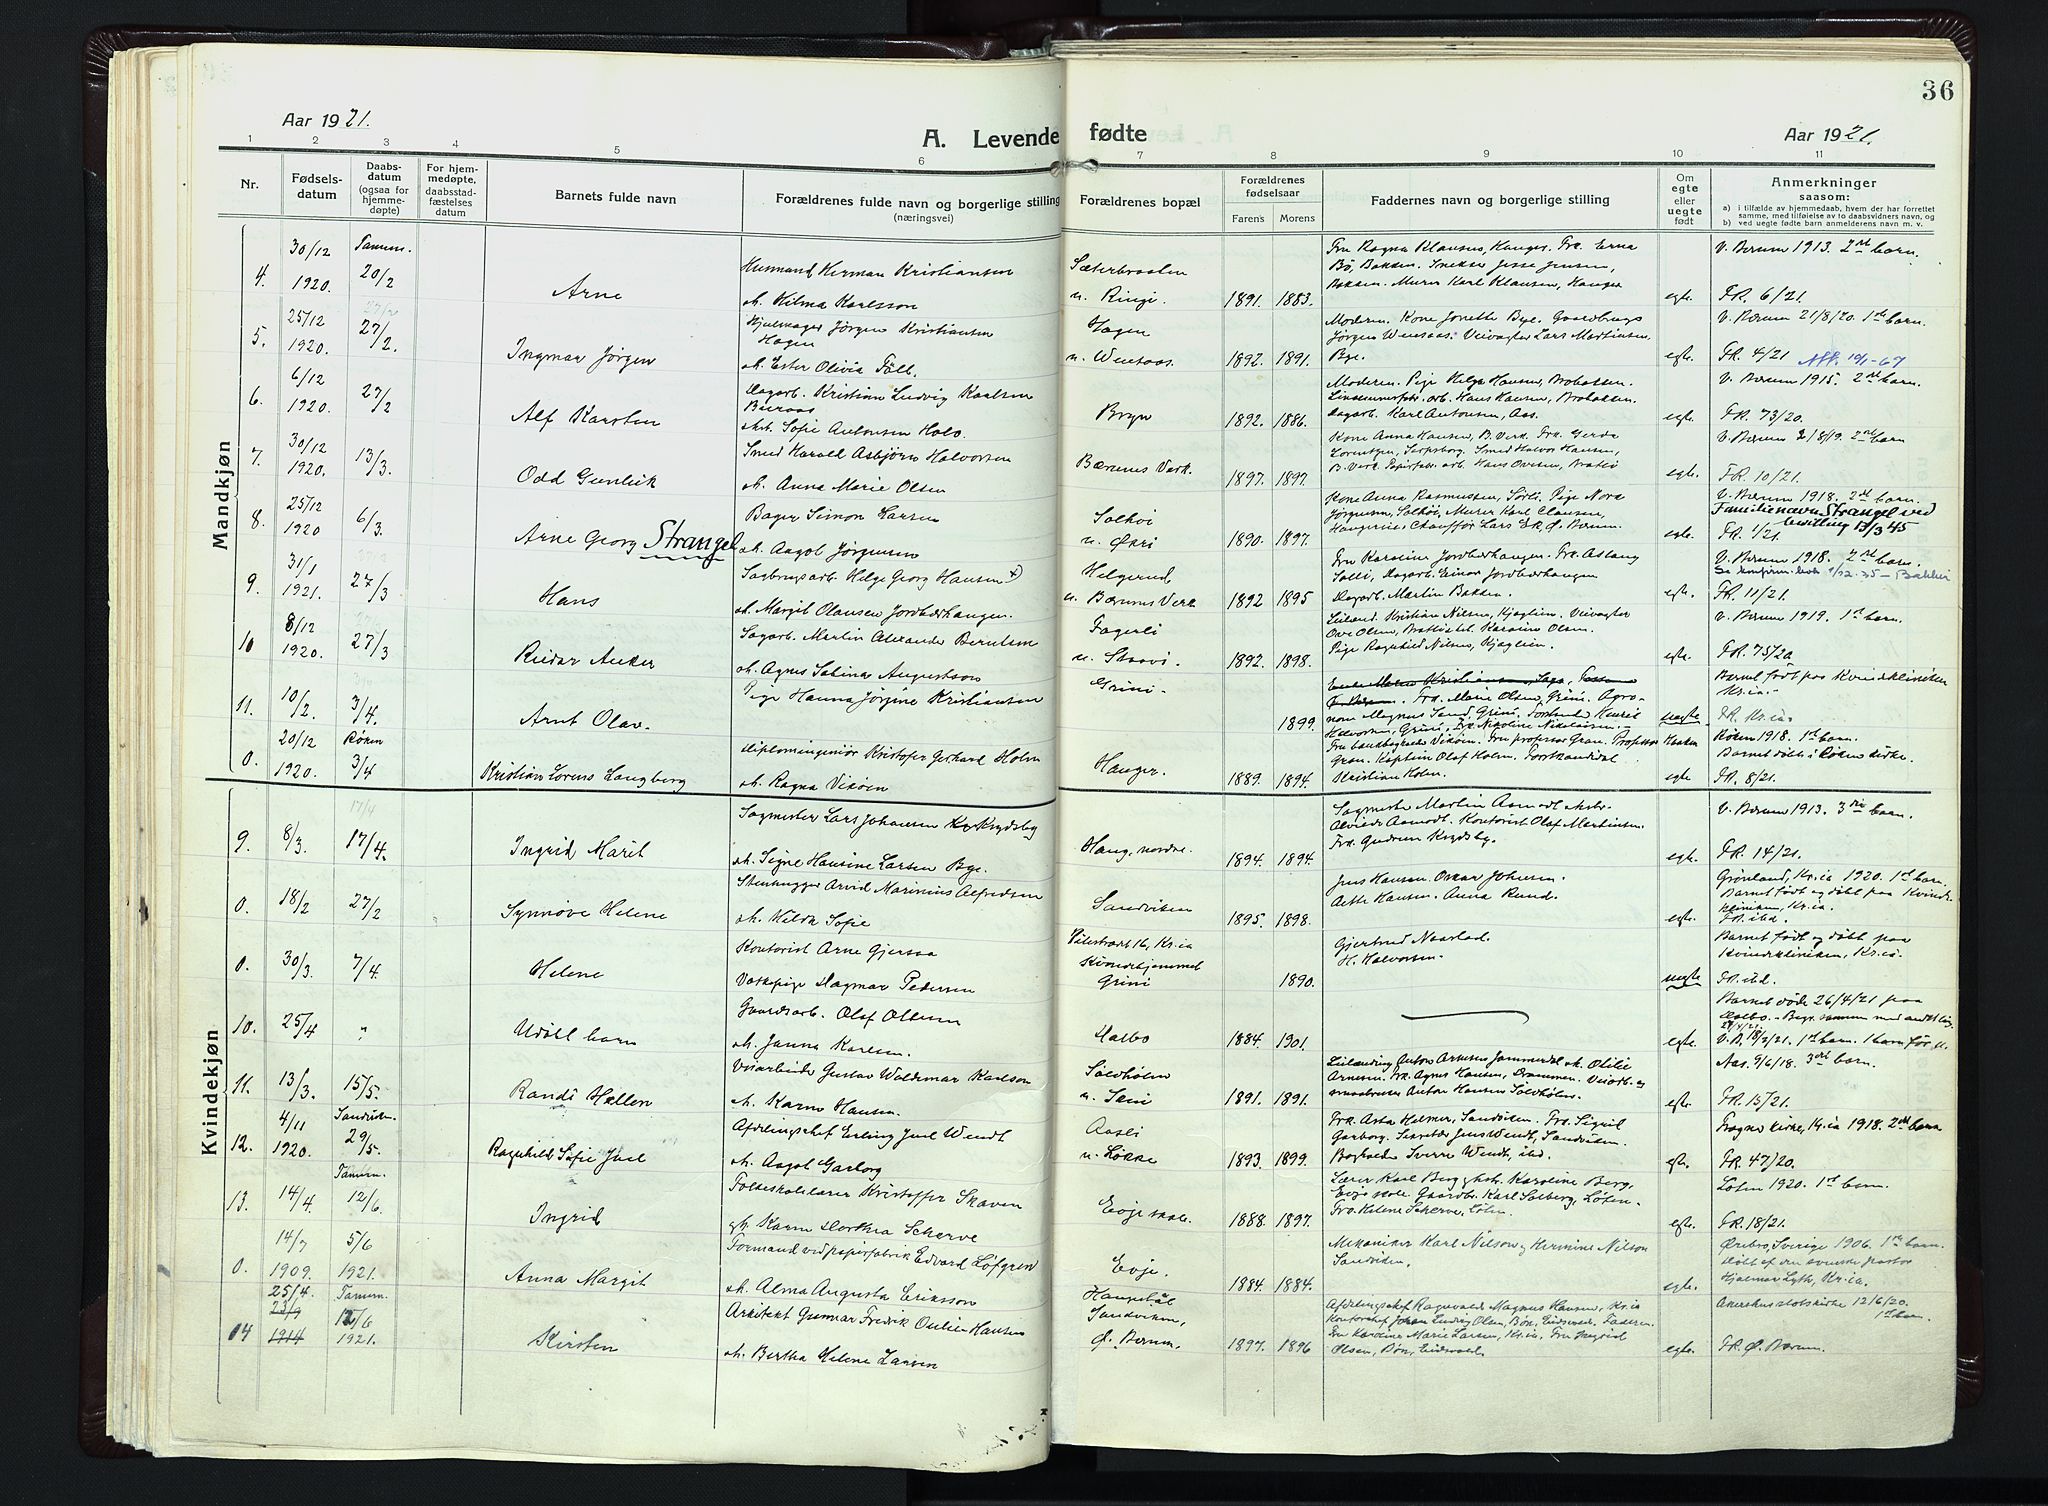 36
Aar 1921.
A. Levende fødte
Aar 1921.
1 2 3 4 5 6 7 8 9 10 11
Nr.
Fødsels-
datum
Daabs-
datum
(ogsaa for
hjemme-
døpte)
For hjem-
medøpte,
daabsstad-
fæstelses
datum
Barnets fulde navn
Forældrenes fulde navn og borgerlige stilling
(næringsvei)
Forældrenes bopæl
Forældrenes
fødselsaar
Farens Morens
Faddernes navn og borgerlige stilling
Om
egte
eller
uegte
født
Anmerkninger
saasom:
a) i tilfælde av hjemmedaab, hvem der har forrettet
samme, med tilføielse av to daabsvidners navn, og
b) ved uegte fødte barn anmelderens navn m. v.
Mandkjøn
4. 30/12 1920. Tanum. 20/2 Arne
Husmand Herman Kristiansen
Hilma Karlsson
u. Ringi. 1891. 1883.
Bakken. Murer Karl Klausen, Hauger
egte. V. Bærum 1913. 2det barn.
FR. 6/21.
5. 25/12 1920. 27/2. Ingmar Jørgen
Hjulmager Jørgen Kristiansen
Hagen
Ester Olivia
Hagen
1892. 1891.
Bye.
egte. V. Bærum 21/8/20. 1ste barn.
FR. 4/21
6. 6/12 1920. 27/2 Alf Karsten
Dagarb. Kristian Ludvig Karlsen
Sofie Antonsen Holo.
Bryn 1892. 1886.
Moderen. Pige Helga Hansen, Brobakken.
arb. Hans Hansen, Brobakken.
Dagarb. Karl Antonsen, Aas.
egte. V. Bærum 1915. 2det barn.
FR. 73/20.
7. 30/12 1920. 13/3. Odd Gunleik
Smed Harald Asbjørn Halvorsen
Anna Marie Olsen
Bærums Verk. 1897. 1897.
Kone Anna Hansen, B. Verk. Frk. Gerda
Lorentzen, Sarpsborg. Smed Halvor Hansen,
egte. V. Bærum 2/8/19. 2det barn
FR. 10/21.
8. 25/12 1920 6/3. Arne Georg Strangel
Bager Simon Larsen
Aagot Jørgensen
Solhøi
u. Økri 1890. 1897.
Kone Anna Rasmussen, Sørli. Pige Nora
Jørgensen, Solhøi. Murer Karl Clausen,
egte. V. Bærum 1918. 2det barn.
Familienavn Strangel ved
bevilling 17/3 45
FR. 1/21.
9. 31/1 1921. 27/3 Hans
Sagbrugsarb. Helge Georg Hansen x)
Margit Olausen Jordbærhaugen.
Helgerud,
u. Bærums Verk 1892 1895
Dagarb. Einar Jordbærhaugen
Dagarb. Martin Bakken.
egte. V. Bærum 1918. 2det barn.
FR. 11/21.
10 8/12 1920. 27/3 Reidar Anker
Sagarb. Martin Alexander Berntsen
Agnes Sabina Augustson
Fagerli
u. Staavi. 1892. 1898.
Kristian Nilsen, Kjaglien. Veivogter
Ove Olsen, Karoline Olsen.
Pige Ragnhild Nilsen, Kjaglien.
egte. V. Bærum 1919. 1ste barn.
FR. 75/20
11. 10/2. 3/4. Arnt Olav.
Pige Hanna Jørgine Kristiansen
Grini. 1899.
Frk. Marie Olsen, Grini. Agro-
nom Magnus Sand, Grini.
Halvorsen, Grini, Frk. Nicoline Nikolaisen.
uegte. Barnet født paa Kvindekliniken
Kr.ia.
FR. Kr.ia.
0. 20/12 1920. Røken 3/4 Kristian Lorens Langberg
Diplomingeniør Kristofer Gerhard Holm
Ragna Vikøen
Hauger. 1889. 1894.
Gran. Kaptein Olaf Holm,
Kristian Holm.
egte Røken 1918. 1ste barn.
Barnet døbt i Røken kirke.
FR. 8/21.
Kvindekjøn
9. 8/3. 17/4. Ingrid Marit
Sagmester Lars Johansen Krydsby
Signe Hansine Larsen Bye.
Haug, nordre. 1894. 1894.
Sagmester Martin Aamodt
Kontorist Olaf Martinsen.
Frk. Gudrun Krydsby.
egte. V. Bærum 1913. 3die barn.
FR. 14/21.
0. 18/2 27/2 Synnøve Helene
Stenhugger Arvid Marinius Alfredsen
Hilda Sofie
Sandviken 1895. 1898.
Jens Hansen. Oskar Johnsen.
Aette Hansen. Anna Rund.
egte. Grønland, Kr.ia 1920. 1ste barn.
Barnet født og døbt paa Kvinde-
kliniken, Kr.ia.
FR. ibd.
0. 30/3. 7/4. Helene
Kontorist Arne Gjersaa
Vaskepige Dagmar Pedersen
Pilestrædet 16, Kr.ia
Kvindehjemmet
Grini 1890.
Gjertrud Naastad.
H. Halvorsen.
uegte Barnet født og døbt paa
Kvindekliniken, Kr.ia.
FR. ibd.
10. 25/4 " Udøbt barn
Gaardsarb. Olaf Olsen
Janna Karlsen.
Aalbo 1884. 1901.
egte. Barnet døde 26/4/21 paa
11. 13/3. 15/5. Randi Hellen
Veiarbeider Gustav Waldemar Karlson
Karen Hansen.
Sølvhølen
1891. 1891.
egte. Aas. 9/6/18. 3die barn.
FR. 15/21.
12. 4/11 1920. Sandviken 29/5. Ragnhild Sofie Juel
Afdelingschef Erling Juel Wendt
Aagot Garborg
Aasli
u. Løkke 1893. 1899.
Frk. Asta Helmer, Sandviken. Frk. Sigrid
Garborg. Sekretær Jens Wendt, Sandviken.
Bogholder Sverre Wendt, ibd.
egte. Frogner kirke, Kr.ia 1918. 2det barn
FR. 47/20.
13. 14/4. Tanum. 12/6. Ingrid
Folkeskolelærer Kristoffer Skaven
Karen Dorthea Scherve
Evje skole. 1888. 1897.
Lærer Karl Berg og hst. Karoline Berg.
Evje skole. Gaardbr. Karl Solberg, Løten.
Frk. Helene Scherve, Løten.
egte. Løten 1920. 1ste barn.
FR. 18/21.
0. 14/7 1909. 5/6 1921. Anna Margit
Formand ved papirfabrik Edvard Løfgren
Alma Augusta Eriksson
Evje. 1884. 1884.
Mekaniker Karl Nilson og Hermine Nilson
Sandviken.
egte. Ørebro, Sverige 1906. 1ste barn.
døbt af den svenske pastor
Hjalmar Lyth, Kr.ia.
14 25/4. 23/9 1914 Tanum. 12/6 1921. Kirsten
Arkitekt Gunnar Fredrik Outien Hansen
Bertha Helene Larsen
Sandviken,
Ø. Bærum. 1897. 1896
Afdelingschef Ragnvald Magnus Hansen, Kr.ia
Kontorchef Johan Ludvig Olsen, Bøn, Eidsvold.
Fru Karoline Marie Larsen, Kr.ia. Fru Ingrid
Olsen, Bøn, Eidsvold.
egte. Akershus slotskirke 12/6/20.
1ste barn.
FR. Ø. Bærum.